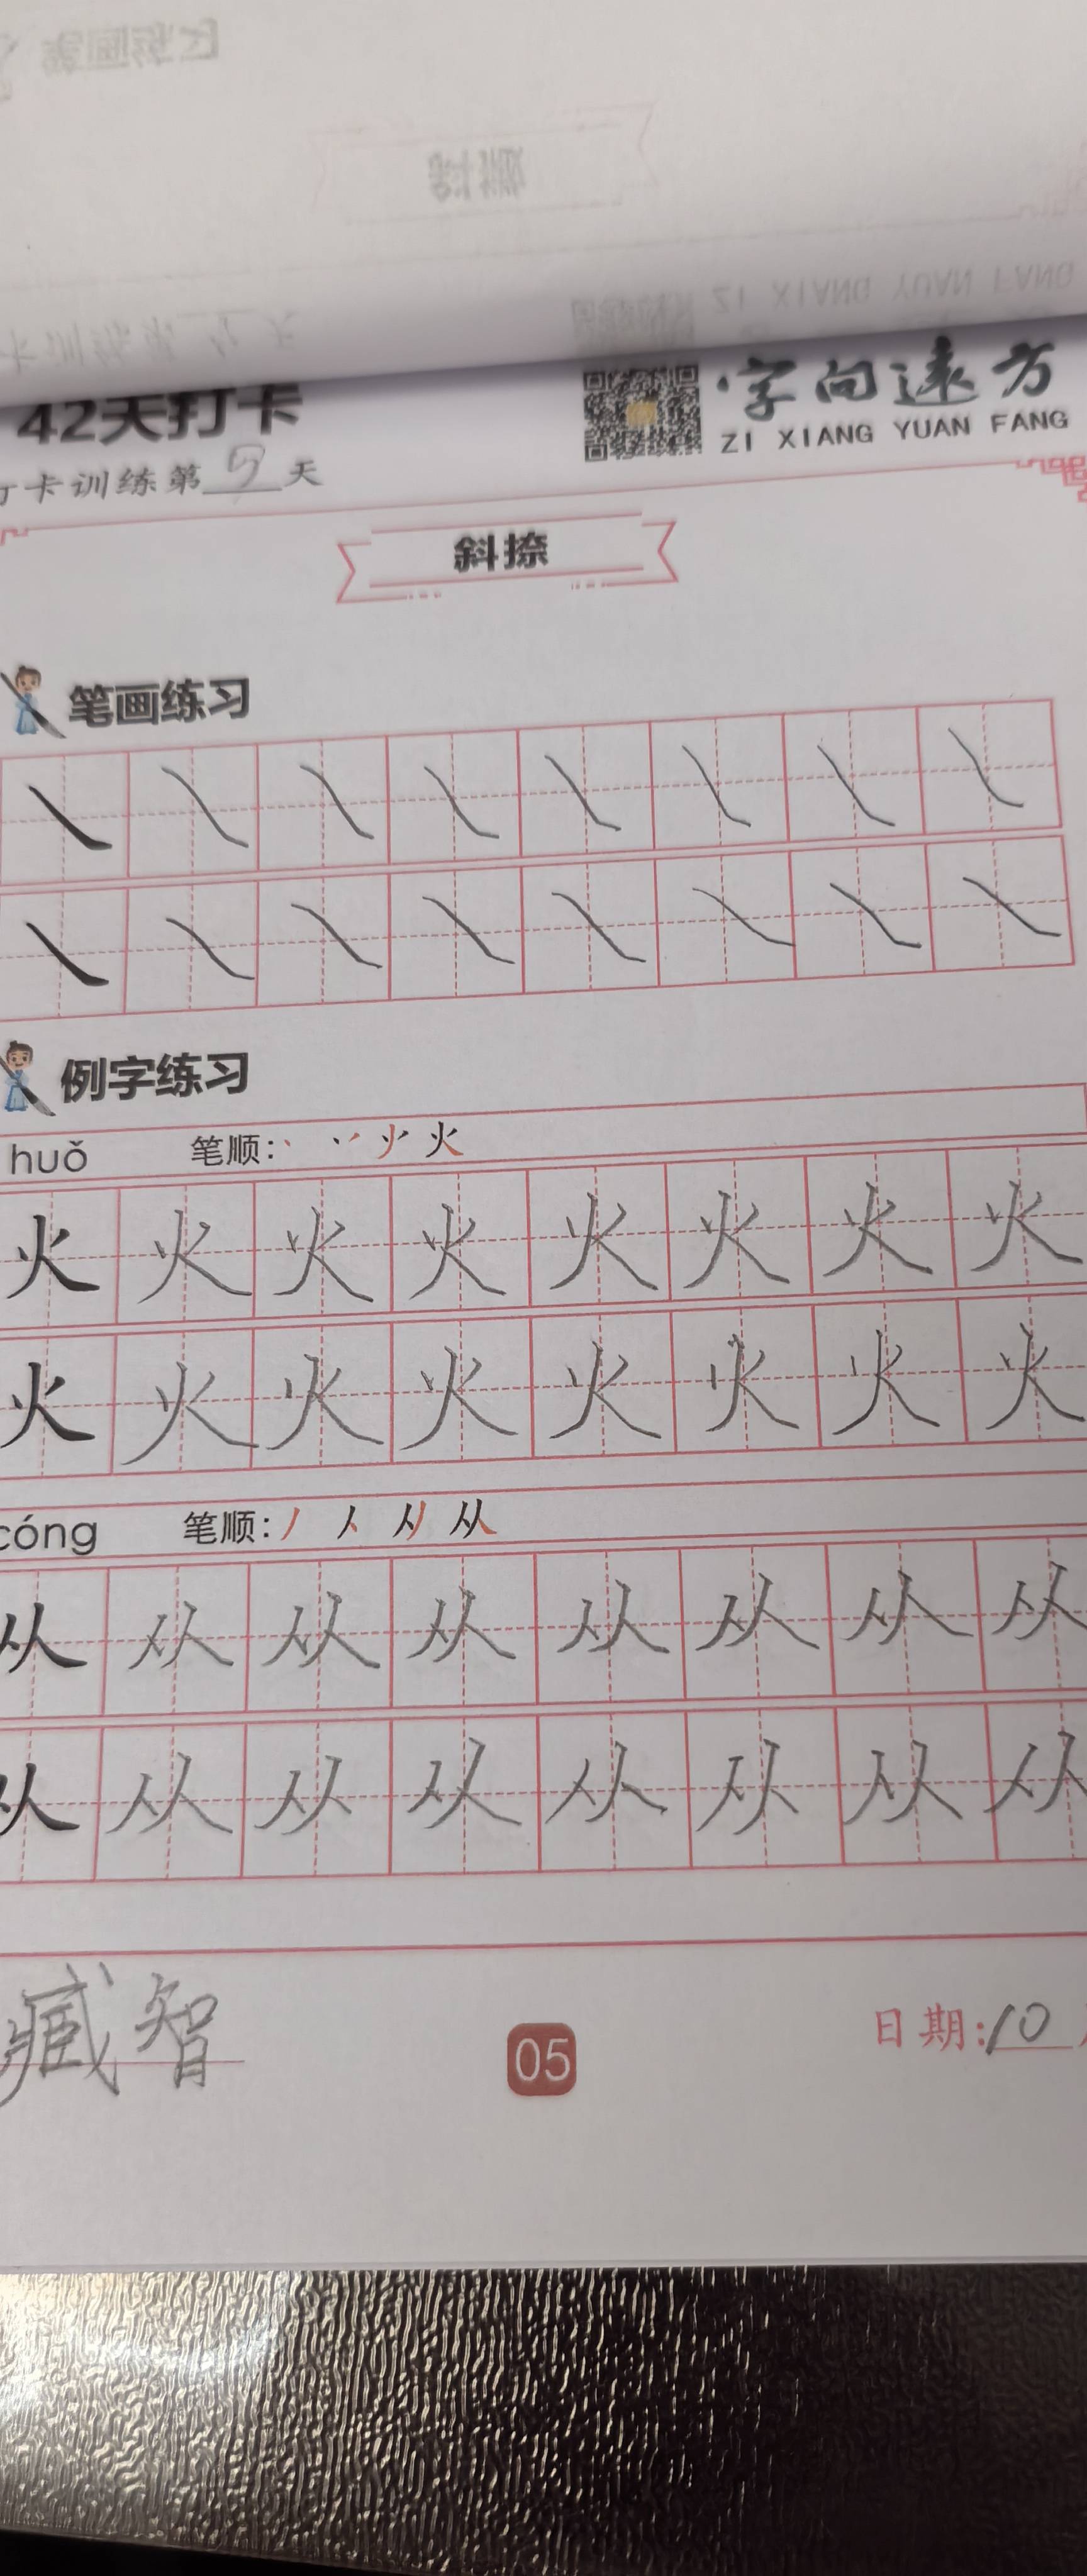 42天打卡
字向远方
ZI XIANG YUAN FANG
打卡训练第 5 天
斜捺
笔画练习
例字练习
huǒ 笔顺: 火
火 火 火 火 火 火 火 火
火 火 火 火 火 火 火 火
cóng 笔顺: 丿 人 从
从 从 从 从 从 从 从 从
从 从 从 从 从 从 从 从
臧智
05
日期: 10